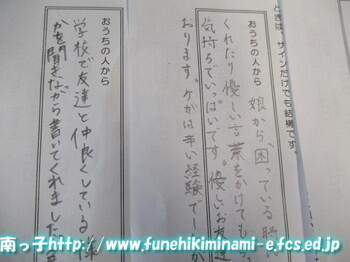 ときは、サインだけでも結構です。
おうちの人から
娘から「困っている時
くれたり優しい言葉をかけてもら
気持ちでいっぱいです。優しいお友達
おります。ケガは辛い経験でしたが
おうちの人から
学校で友達と仲良くしている様
かを聞きながら書いてくれました。
南っ子http://www.funehikiminami-e.fcs.ed.jp